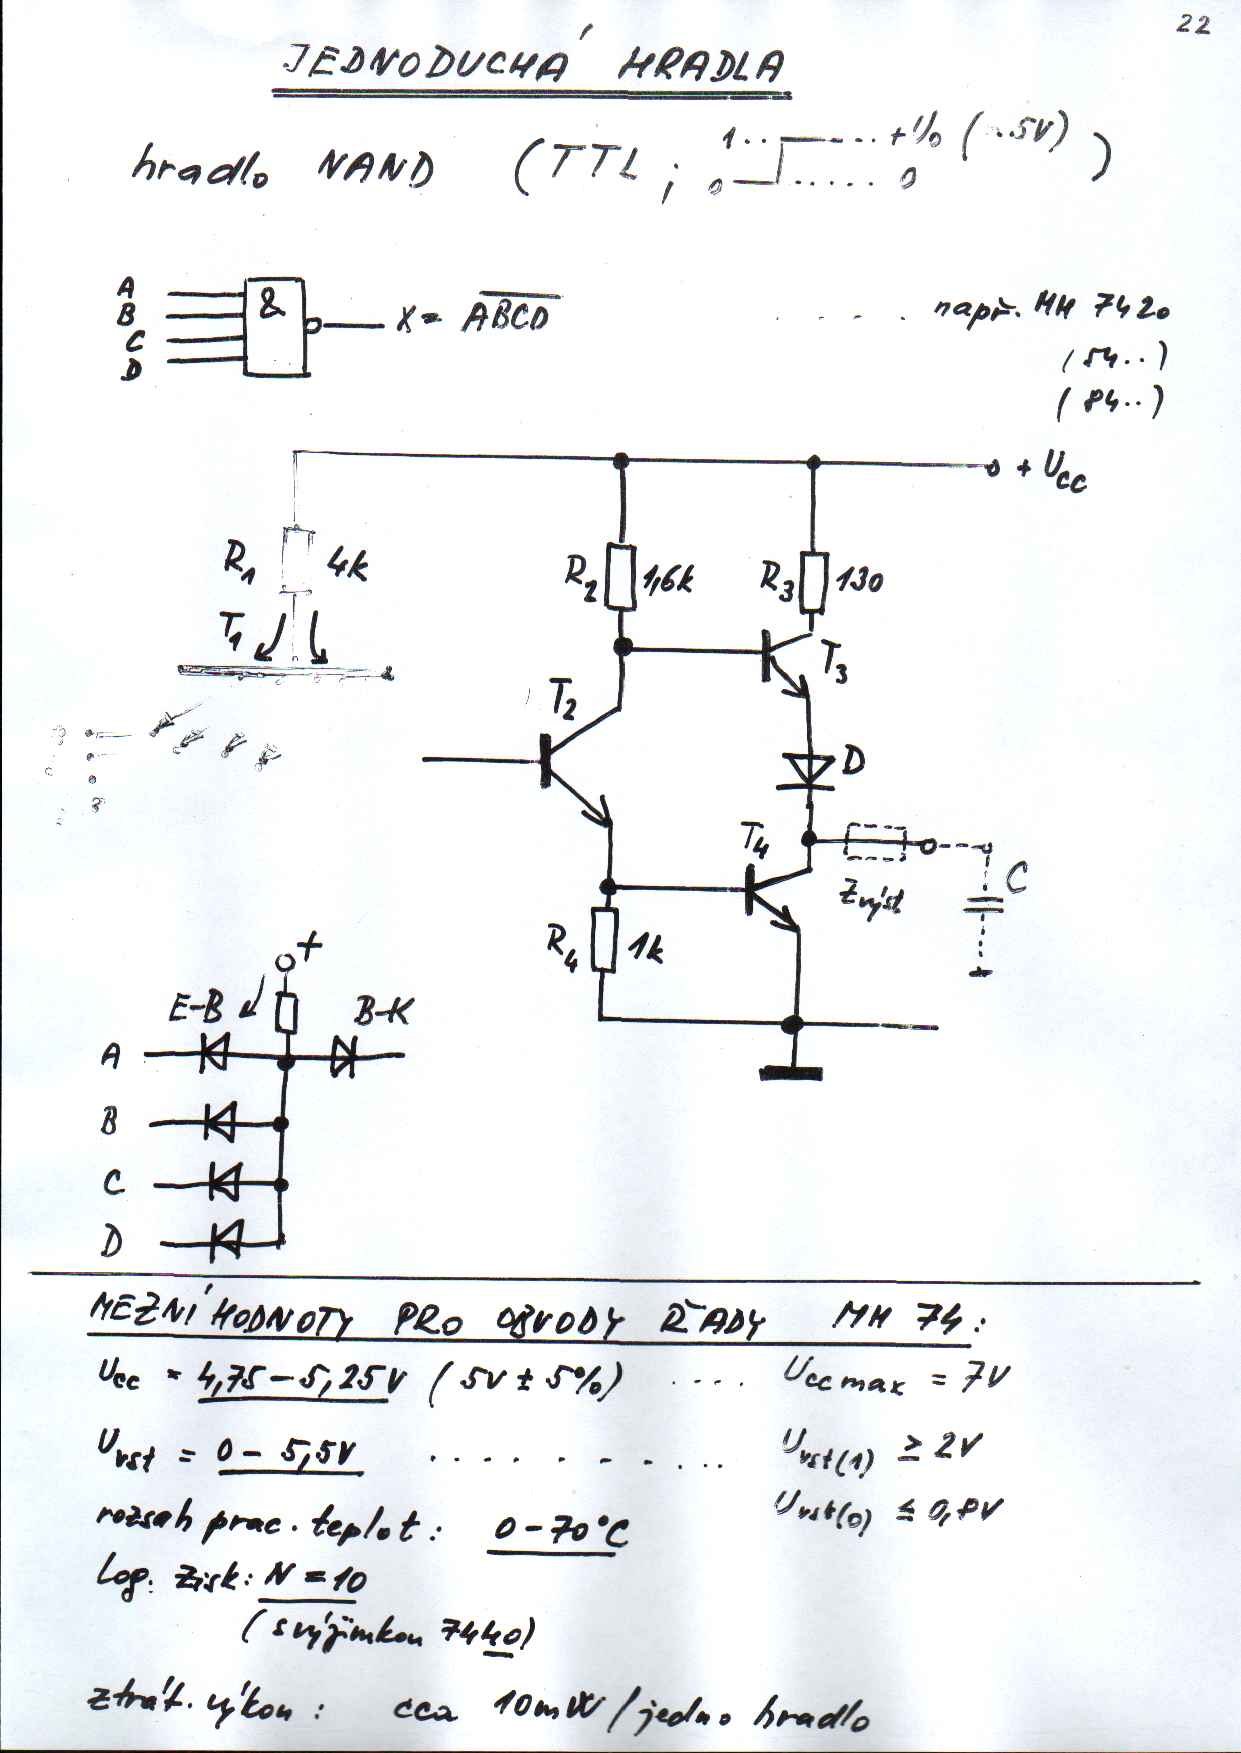 22
JEDNODUCHÁ HRADLA
hradlo NAND (TTL; 1.. ....+U0 (..5V) )
0 ..... 0
A
B
C
D
&
X = \overline{ABCD}
. . . . např. MH 7420
(54..)
(84..)
+ Ucc
R1 4k
R2 1,6k
R3 130
T1
T2
T3
D
T4
Zvýst
C
R4 1k
+
E-B
B-K
A
B
C
D
MEZNÍ HODNOTY PRO OBVODY ŘADY MH 74:
Ucc = 4,75 - 5,25V (5V ± 5%) .... Ucc max = 7V
Uvst = 0 - 5,5V .......... Uvst(1) ≥ 2V
Uvst(0) ≤ 0,8V
rozsah prac. teplot: 0-70°C
Log. zisk: N = 10
(s výjimkou 7440)
ztrát. výkon: cca 10mW/jedno hradlo